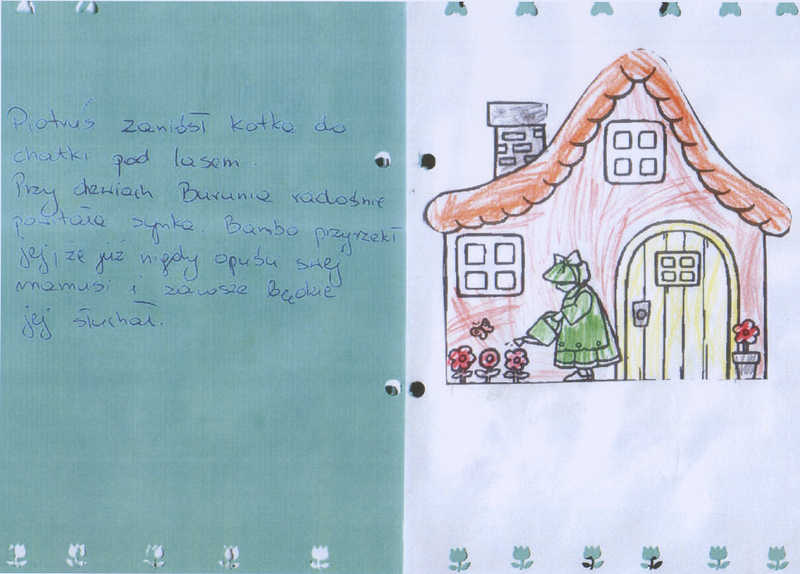 Piotruś zaniósł kotka do
chatki pod lasem.
Przy drzwiach Burunia radośnie
powitała synka. Bambo przyrzekł
jej, że już nigdy opuści swej
mamusi i zawsze będzie
jej słuchał.